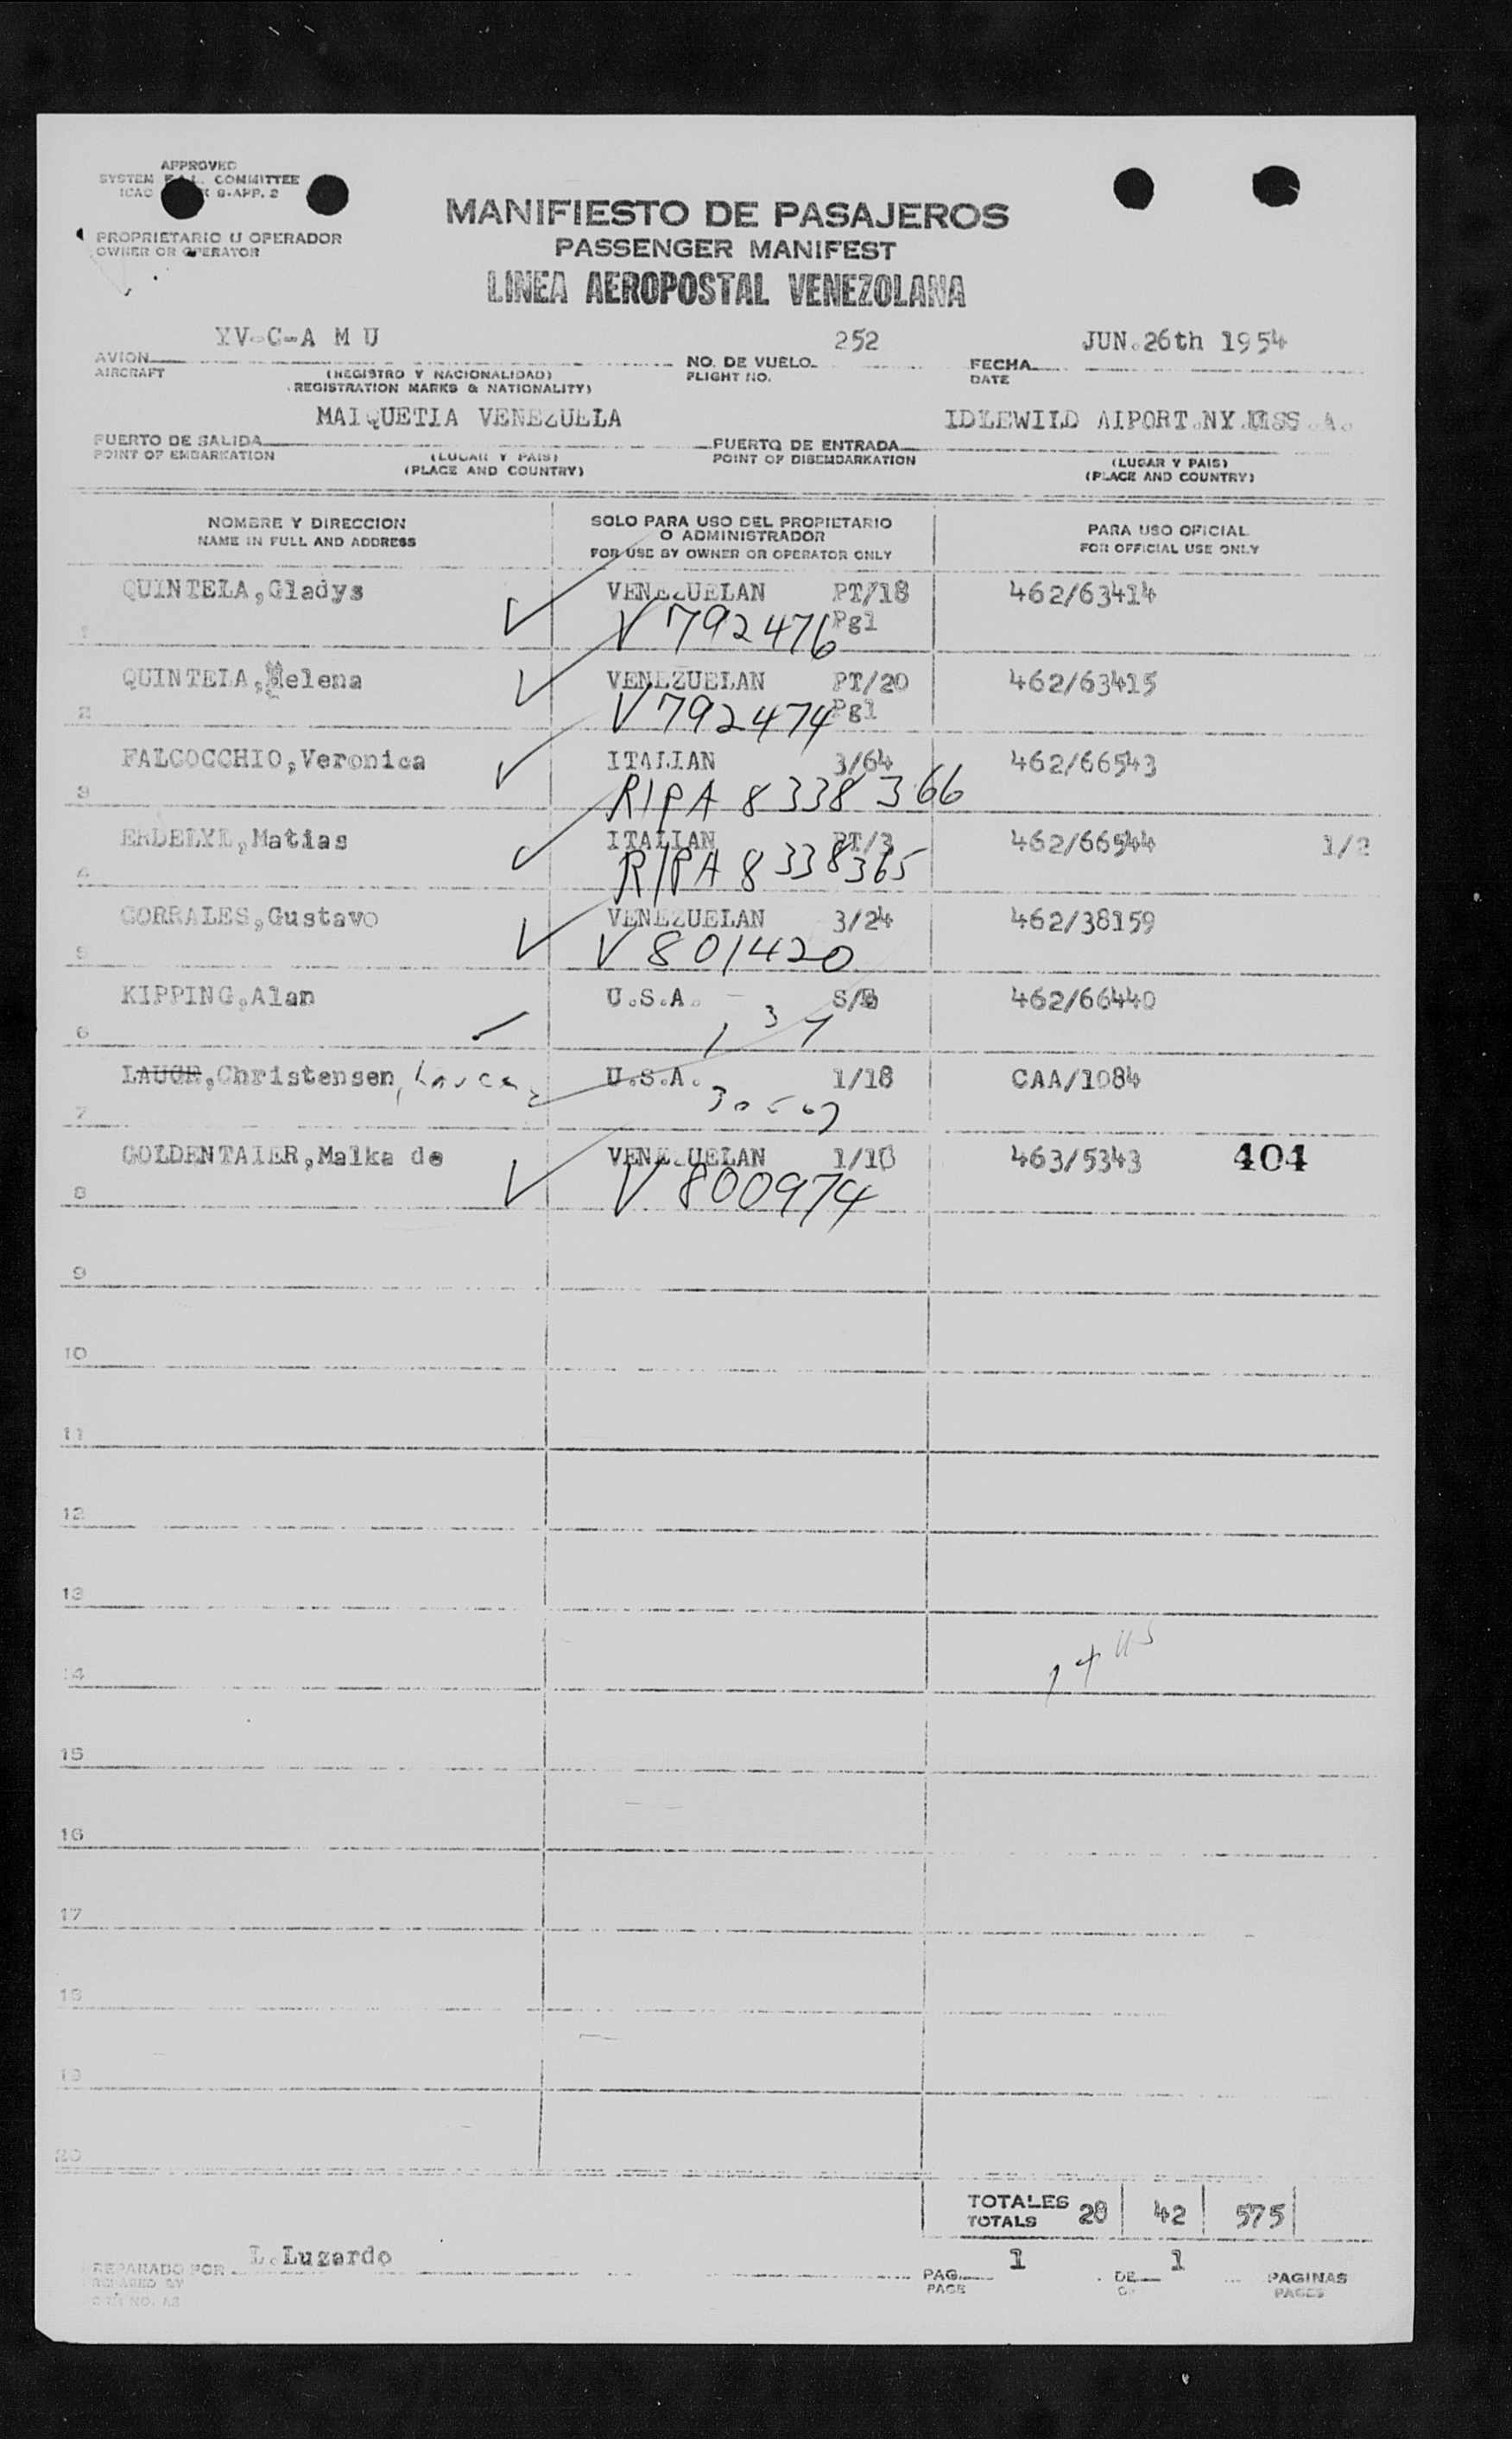 APPROVED
SYSTEM F.A.L. COMMITTEE
ICAO 9-APP. 2
PROPRIETARIO U OPERADOR
OWNER OR OPERATOR
MANIFIESTO DE PASAJEROS
PASSENGER MANIFEST
LINEA AEROPOSTAL VENEZOLANA
YV-C-A M U 252 JUN.26th 1954
AVION NO. DE VUELO FECHA
AIRCRAFT (REGISTRO Y NACIONALIDAD) FLIGHT NO. DATE
(REGISTRATION MARKS & NATIONALITY)
MAIQUETIA VENEZUELA IDLEWILD AIPORT.NY.USS.A.
PUERTO DE SALIDA PUERTO DE ENTRADA
POINT OF EMBARKATION (LUGAR Y PAIS) POINT OF DISEMBARKATION (LUGAR Y PAIS)
(PLACE AND COUNTRY) (PLACE AND COUNTRY)
NOMBRE Y DIRECCION SOLO PARA USO DEL PROPIETARIO O ADMINISTRADOR PARA USO OFICIAL
NAME IN FULL AND ADDRESS FOR USE BY OWNER OR OPERATOR ONLY FOR OFFICIAL USE ONLY
QUINTELA,Gladys VENEZUELAN PT/18 462/63414
1 V 792476 Pg1
QUINTELA,Helena VENEZUELAN PT/20 462/63415
2 V 792474 Pg1
FALCOCCHIO,Veronica ITALIAN 3/64 462/66543
3 RIPA 8338366
ERDELYI,Matias ITALIAN PT/3 462/66544 1/2
4 RIPA 8338365
CORRALES,Gustavo VENEZUELAN 3/24 462/38159
5 V 801420
KIPPING,Alan U.S.A. 462/66440
6
LAUGE,Christensen, U.S.A. 1/18 CAA/1084
7
GOLDENTAIER,Malka de VENEZUELAN 1/10 463/5343 404
8 V 800974
9
10
11
12
13
14
15
16
17
18
19
20
TOTALES 28 42 575
TOTALS
L.Luzardo 1 1
PREPARADO POR PAG. DE PAGINAS
PREPARED BY PAGE OF PAGES